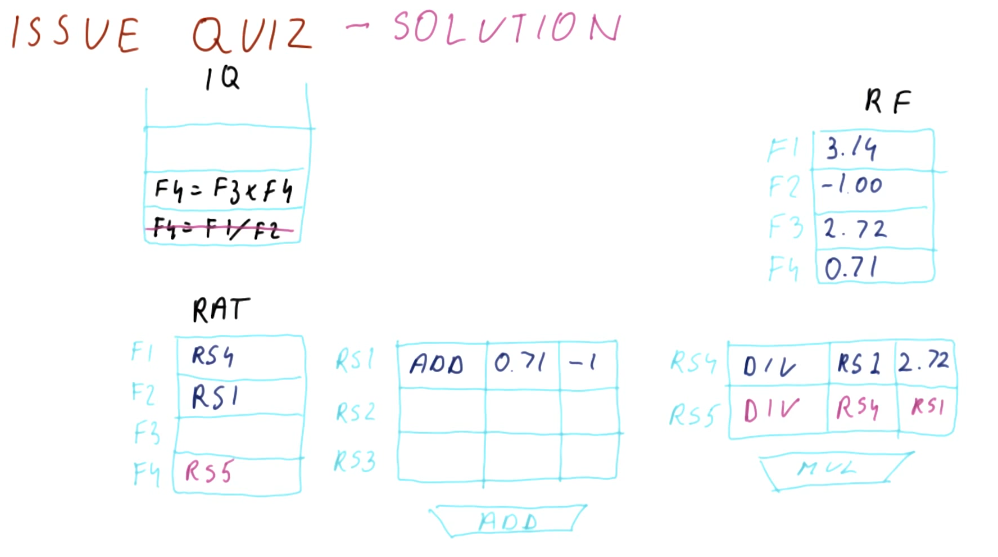 ISSUE QUIZ - SOLUTION
IQ
F4 = F3 x F4
F4 = F1/F2
RF
F1 3.14
F2 -1.00
F3 2.72
F4 0.71
RAT
F1 RS4
F2 RS1
F3
F4 RS5
RS1 ADD 0.71 -1
RS2
RS3
ADD
RS4 DIV RS1 2.72
RS5 DIV RS4 RS1
MUL